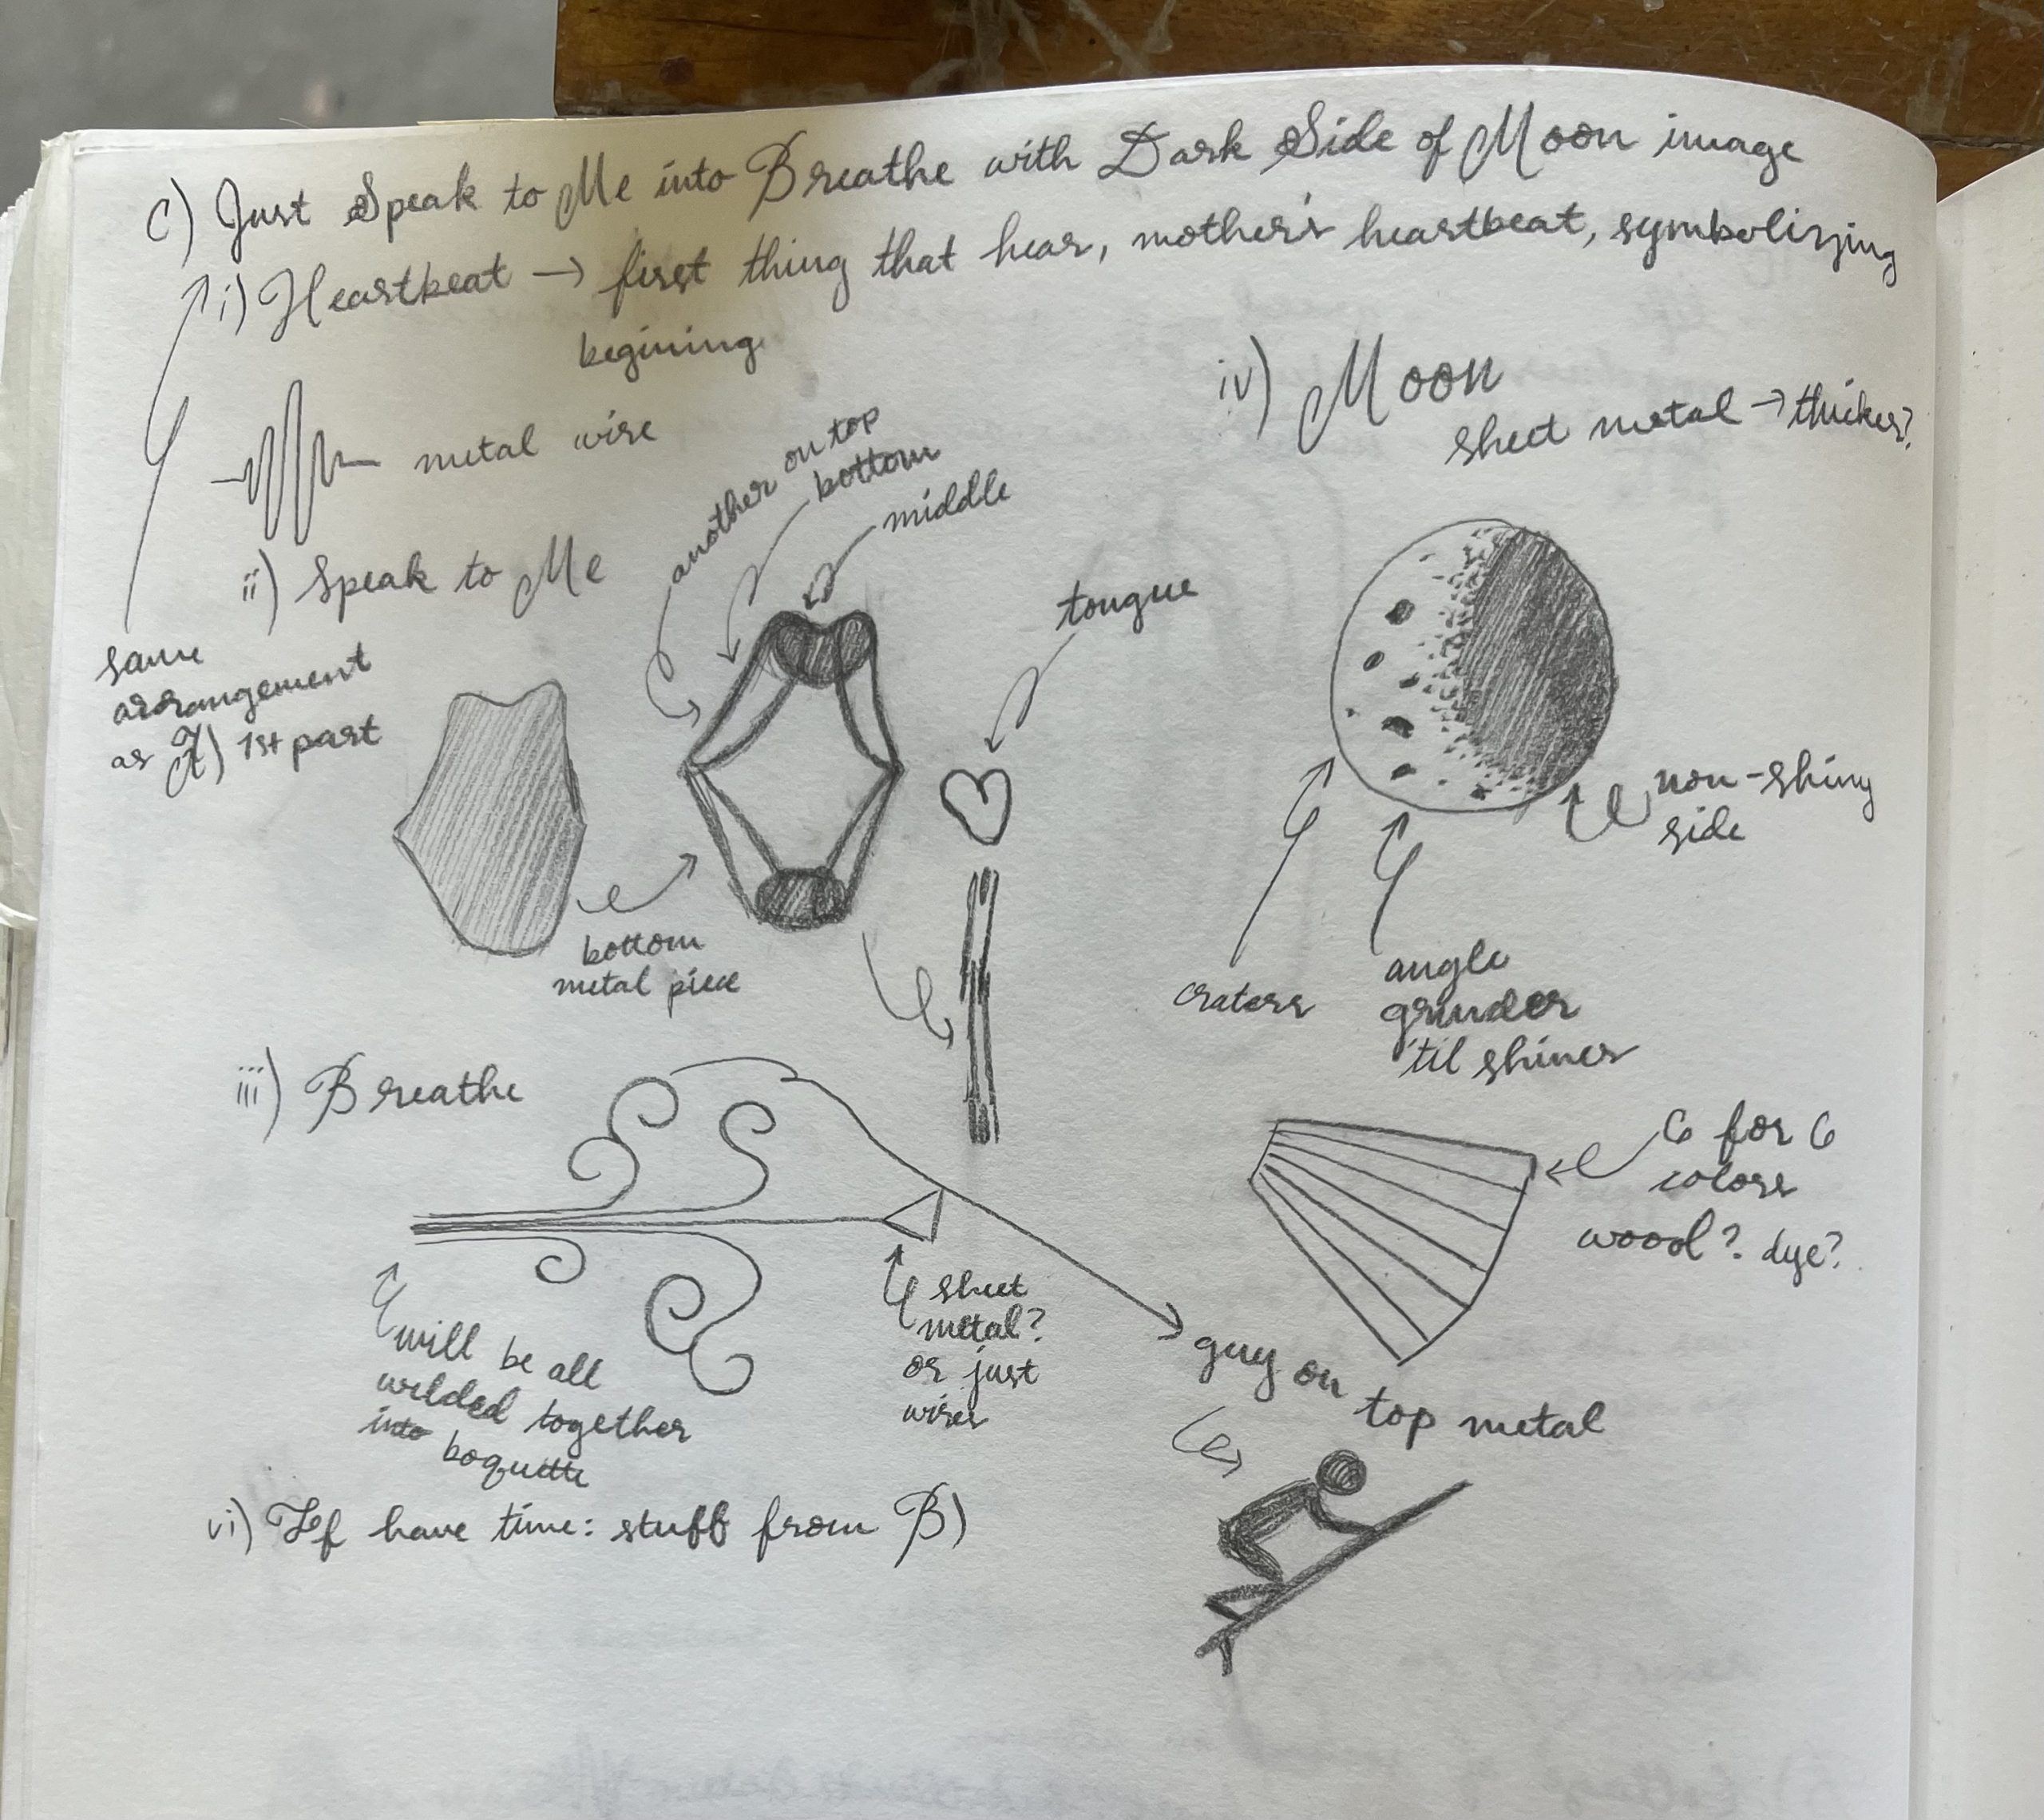 C) Just Speak to Me into Breathe with Dark Side of Moon image
i) Heartbeat → first thing that hear, mother's heartbeat, symbolizing
begining
metal wire
same
arrangement
as A) 1st part
ii) Speak to Me
another on top
bottom
middle
tongue
bottom
metal piece
iii) Breathe
will be all
welded together
into boquette
sheet
metal?
or just
wires
guy on
top metal
iv) Moon
sheet metal → thicker?
non-shiny
side
craters
angle
grinder
'til shines
6 for 6
colors
wood? dye?
vi) If have time: stuff from B)